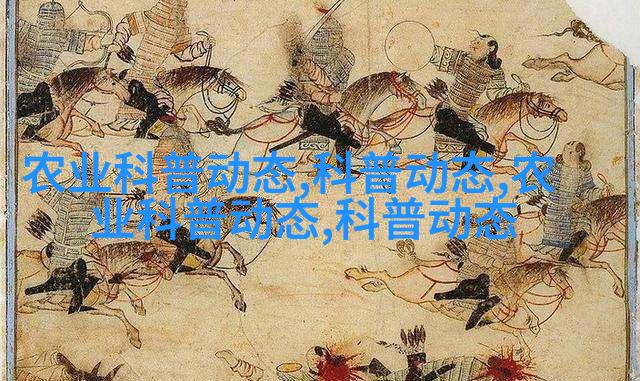 农业科普动态,科普动态,农
业科普动态,科普动态